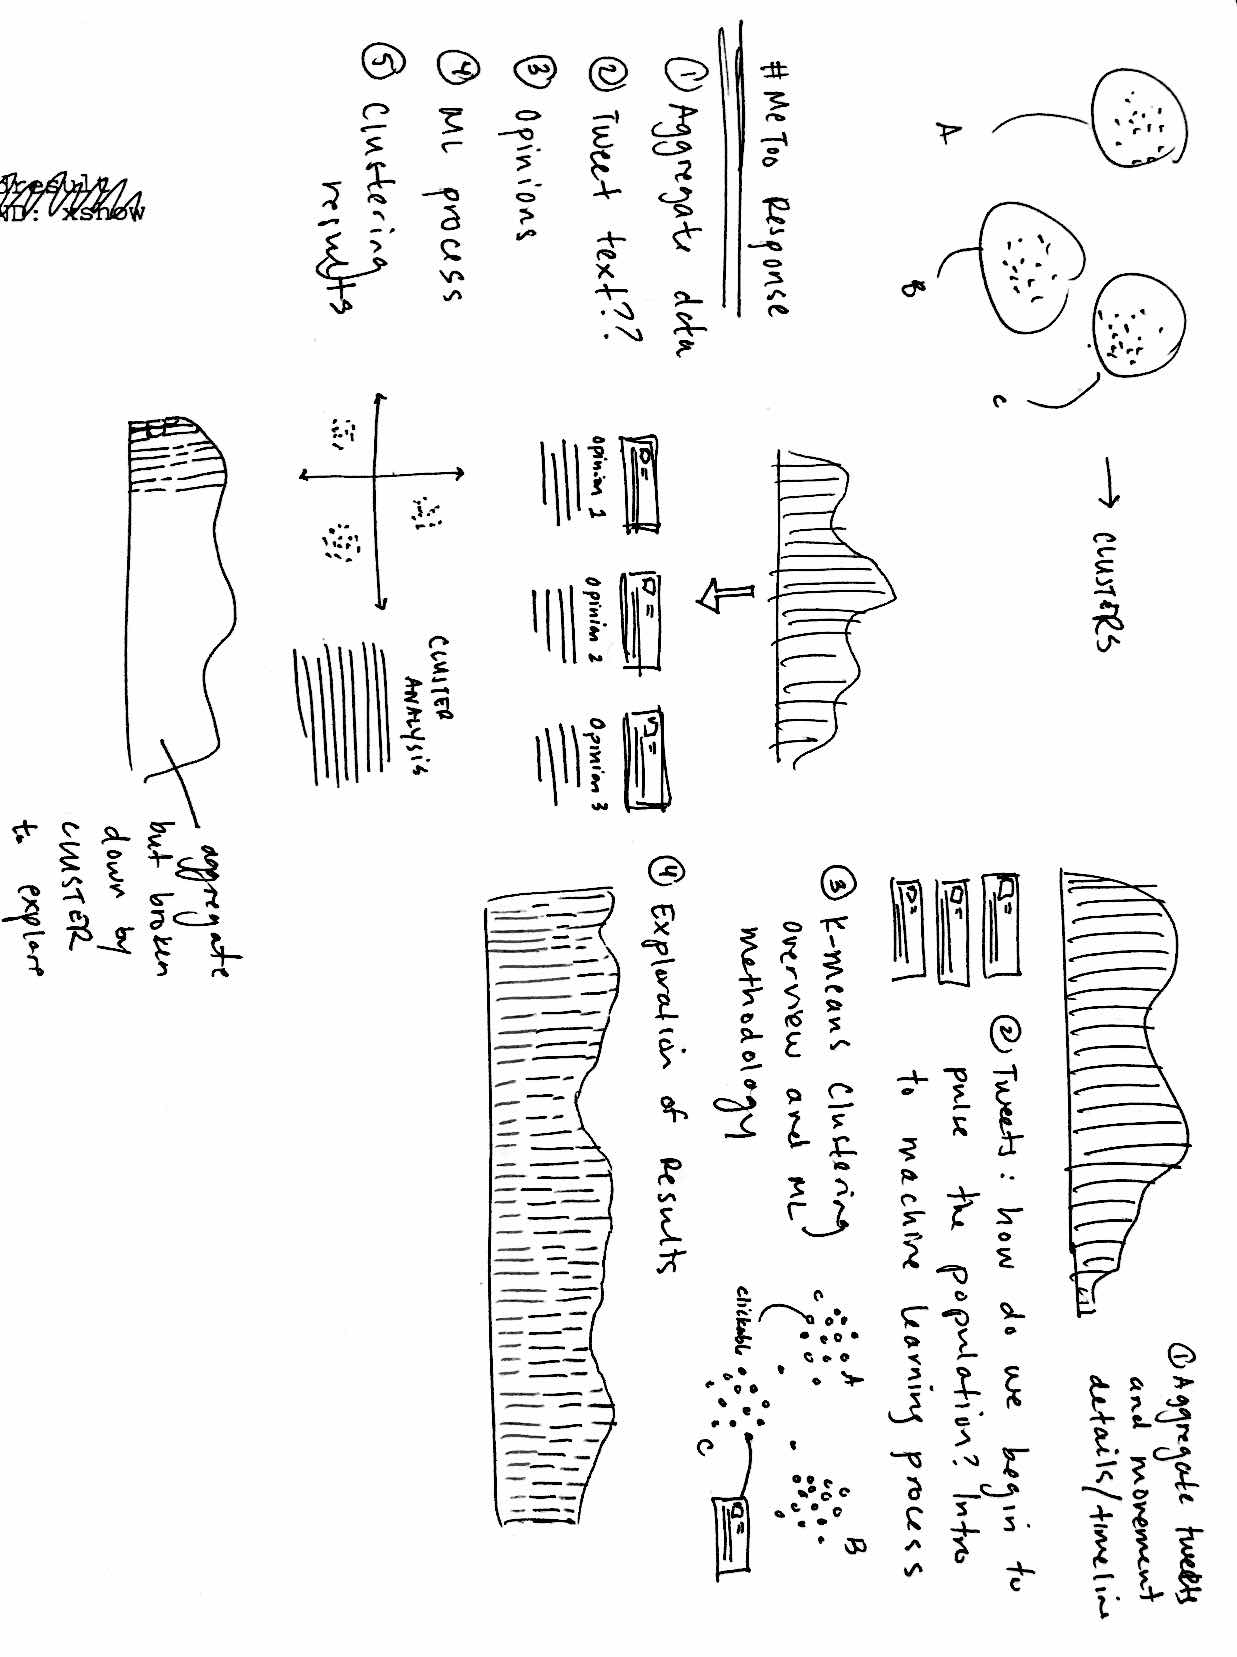 A
B
C
→ CLUSTERS
# MeToo Response
① Aggregate data
② Tweet text??
③ Opinions
④ ML process
⑤ Clustering
results
opinion 1
opinion 2
opinion 3
CLUSTER
ANALYSIS
aggregate
but broken
down by
CLUSTER
to explore
① Aggregate tweets
and movement
details/timeline
② Tweets: how do we begin to
pulse the population? Intro
to machine learning process
③ K-means Clustering
overview and ML
methodology
C
A
B
C
clickable
④ Exploration of Results
ND: xshow